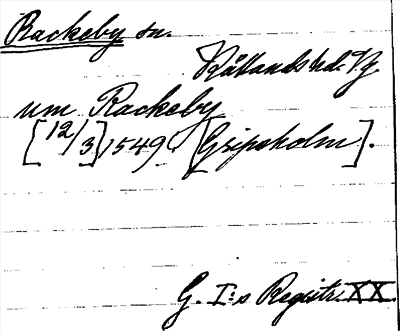 Rackeby sn.
Kållands hd. Vg.
um Rackeby
[12/3] 1549 [Gripsholm].
G. I:s Registr. XX.